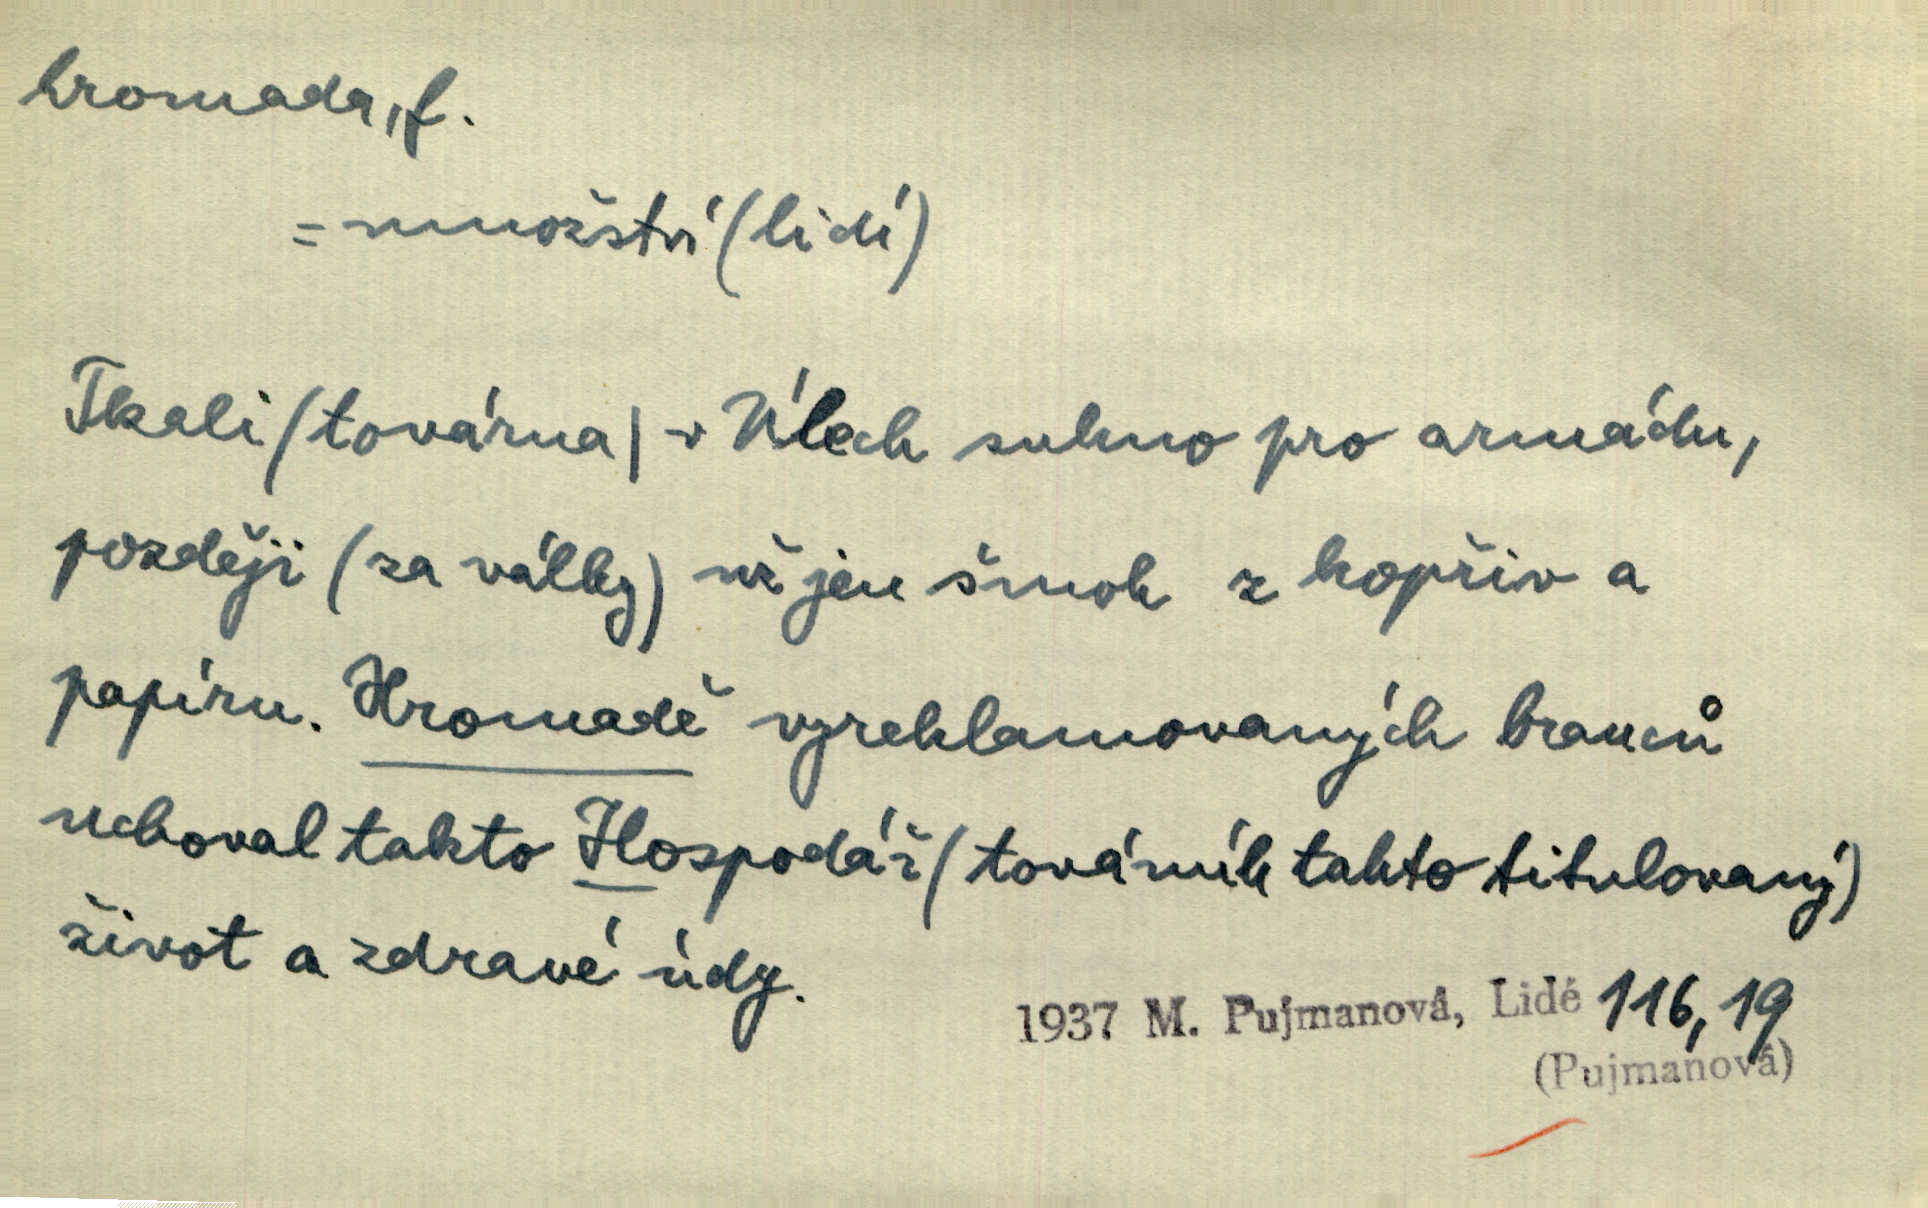 hromada, f.
= množství (lidí)
Tkali (továrna) v Úlech sukno pro armádu,
později (za války) už jen šmok z kopřiv a
papíru. Hromadě vyreklamovaných branců
uchoval takto Hospodář (továrník takto titulovaný)
život a zdravé údy.
1937 M. Pujmanová, Lidé 116,19
(Pujmanová)